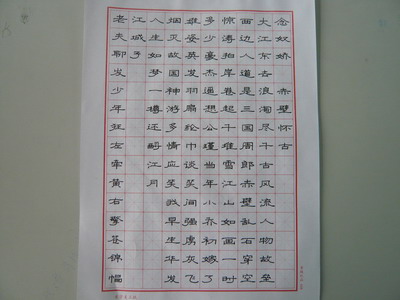 念奴娇 赤壁怀古
大江东去浪淘尽千古风流人物故垒
西边人道是三国周郎赤壁乱石穿空
惊涛拍岸卷起千堆雪江山如画一时
多少豪杰遥想公瑾当年小乔初嫁了
雄姿英发羽扇纶巾谈笑间强虏灰飞
烟灭故国神游多情应笑我早生华发
人生如梦一樽还酹江月
江城子
老夫聊发少年狂左牵黄右擎苍锦帽